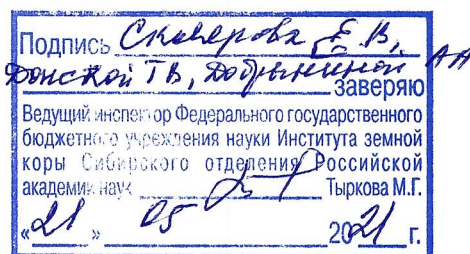 Подпись Склярова Е.В,
Донской ТВ, Добрыниной АА
заверяю
Ведущий инспектор Федерального государственного
бюджетного учреждения науки Института земной
коры Сибирского отделения Российской
академии наук Тыркова М.Г.
«21» 05 2021 г.